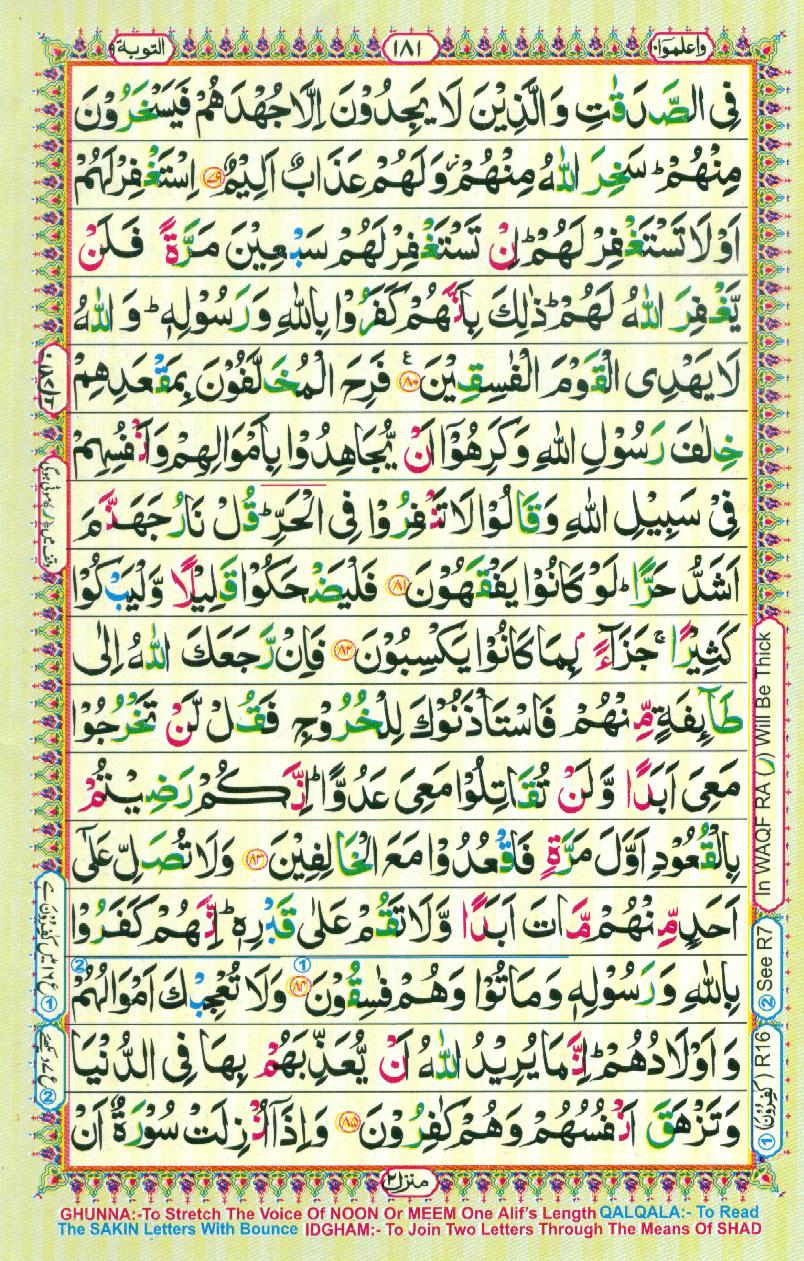 واعلموا۱۰
۱۸۱
التوبة۹
فِی الصَّدَقٰتِ وَالَّذِیْنَ لَا یَجِدُوْنَ اِلَّا جُهْدَهُمْ فَیَسْخَرُوْنَ
مِنْهُمْ ؕ سَخِرَ اللّٰهُ مِنْهُمْ ؗ وَلَهُمْ عَذَابٌ اَلِیْمٌ ﴿۷۹﴾ اِسْتَغْفِرْ لَهُمْ
اَوْ لَا تَسْتَغْفِرْ لَهُمْ ؕ اِنْ تَسْتَغْفِرْ لَهُمْ سَبْعِیْنَ مَرَّةً فَلَنْ
یَّغْفِرَ اللّٰهُ لَهُمْ ؕ ذٰلِكَ بِاَنَّهُمْ كَفَرُوْا بِاللّٰهِ وَرَسُوْلِهٖ ؕ وَاللّٰهُ
لَا یَهْدِی الْقَوْمَ الْفٰسِقِیْنَ ﴿۸۰﴾ ع فَرِحَ الْمُخَلَّفُوْنَ بِمَقْعَدِهِمْ
خِلٰفَ رَسُوْلِ اللّٰهِ وَكَرِهُوْۤا اَنْ یُّجَاهِدُوْا بِاَمْوَالِهِمْ وَاَنْفُسِهِمْ
فِیْ سَبِیْلِ اللّٰهِ وَقَالُوْا لَا تَنْفِرُوْا فِی الْحَرِّ ؕ قُلْ نَارُ جَهَنَّمَ
اَشَدُّ حَرًّا ؕ لَوْ كَانُوْا یَفْقَهُوْنَ ﴿۸۱﴾ فَلْیَضْحَكُوْا قَلِیْلًا وَّلْیَبْكُوْا
كَثِیْرًا ۚ جَزَآءًۢ بِمَا كَانُوْا یَكْسِبُوْنَ ﴿۸۲﴾ فَاِنْ رَّجَعَكَ اللّٰهُ اِلٰی
طَآئِفَةٍ مِّنْهُمْ فَاسْتَاْذَنُوْكَ لِلْخُرُوْجِ فَقُلْ لَّنْ تَخْرُجُوْا
مَعِیَ اَبَدًا وَّلَنْ تُقَاتِلُوْا مَعِیَ عَدُوًّا ؕ اِنَّكُمْ رَضِیْتُمْ
بِالْقُعُوْدِ اَوَّلَ مَرَّةٍ فَاقْعُدُوْا مَعَ الْخَالِفِیْنَ ﴿۸۳﴾ وَلَا تُصَلِّ عَلٰۤی
اَحَدٍ مِّنْهُمْ مَّاتَ اَبَدًا وَّلَا تَقُمْ عَلٰی قَبْرِهٖ ؕ اِنَّهُمْ كَفَرُوْا
بِاللّٰهِ وَرَسُوْلِهٖ وَمَاتُوْا وَهُمْ فٰسِقُوْنَ ﴿۸۴﴾ وَلَا تُعْجِبْكَ اَمْوَالُهُمْ
وَاَوْلَادُهُمْ ؕ اِنَّمَا یُرِیْدُ اللّٰهُ اَنْ یُّعَذِّبَهُمْ بِهَا فِی الدُّنْیَا
وَتَزْهَقَ اَنْفُسُهُمْ وَهُمْ كٰفِرُوْنَ ﴿۸۵﴾ وَاِذَاۤ اُنْزِلَتْ سُوْرَةٌ اَنْ
منزل۲
In WAQF RA (ر) Will Be Thick
② See R7
① (كٰفِرُوْنَ) R16
GHUNNA:-To Stretch The Voice Of NOON Or MEEM One Alif's Length QALQALA:- To Read
The SAKIN Letters With Bounce IDGHAM:- To Join Two Letters Through The Means Of SHAD